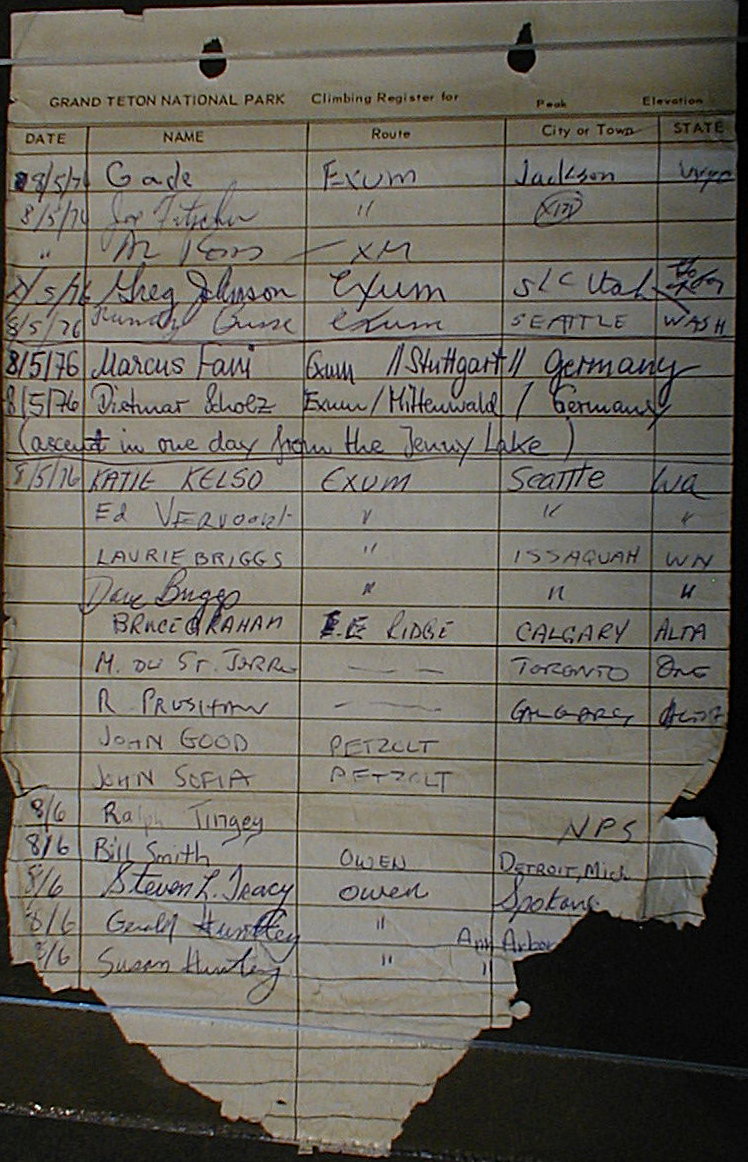 GRAND TETON NATIONAL PARK Climbing Register for Peak Elevation
DATE NAME Route City or Town STATE
8/5/76 Gade Exum Jackson Wyo
8/5/76 Joe "
" Al XM
8/5/76 Greg Johnson Exum SLC Utah
8/5/76 Randy Exum SEATTLE WASH
8/5/76 Marcus Exum // Stuttgart // Germany
8/5/76 Dietmar Scholz Exum / Mittenwald / Germany
(ascent in one day from the Jenny Lake)
8/5/76 KATIE KELSO EXUM Seattle Wa
Ed " " "
LAURIE BRIGGS " ISSAQUAH WN
Dave Briggs " " "
BRUCE GRAHAM E RIDGE CALGARY ALTA
M. DU ST. TORONTO ONT
R CALGARY ALTA
JOHN GOOD PETZOLT
JOHN SOFIA PETZOLT
8/6 Ralph Tingey NPS
8/6 Bill Smith OWEN DETROIT, Mich
8/6 Steven L. Tracy Owen Spokane
8/6 Gerald Huntley " Ann Arbor
8/6 Susan Huntley " "